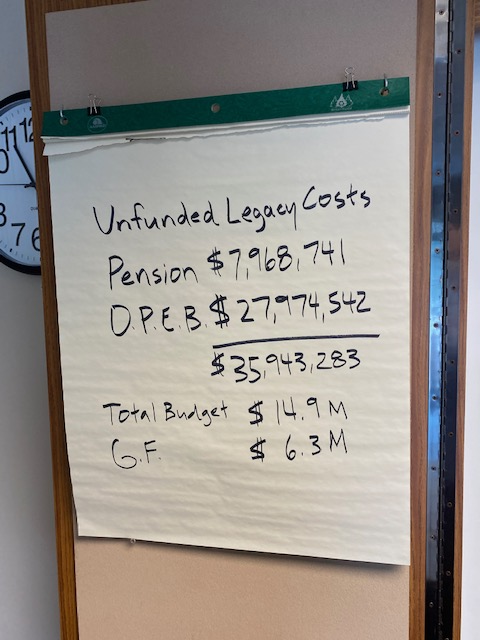 Unfunded Legacy Costs
Pension $7,968,741
O.P.E.B. $27,974,542
$35,943,283
Total Budget $ 14.9 M
G.F. $ 6.3 M
11 12
7 6